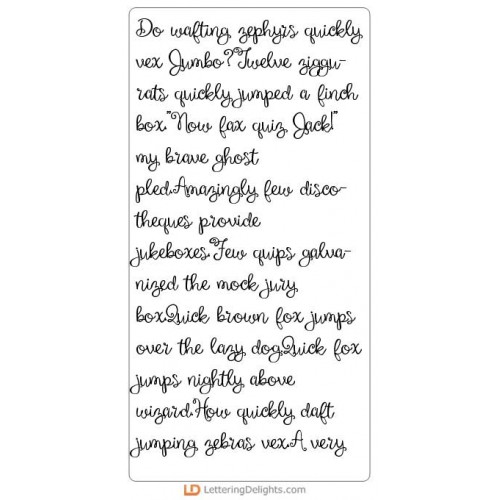 Do wafting zephyrs quickly
vex Jumbo?Twelve ziggu-
rats quickly jumped a finch
box."Now fax quiz Jack!"
my brave ghost
pled.Amazingly few disco-
theques provide
jukeboxes.Few quips galva-
nized the mock jury
box.Quick brown fox jumps
over the lazy dog.Quick fox
jumps nightly above
wizard.How quickly daft
jumping zebras vex.A very
LD LetteringDelights.com